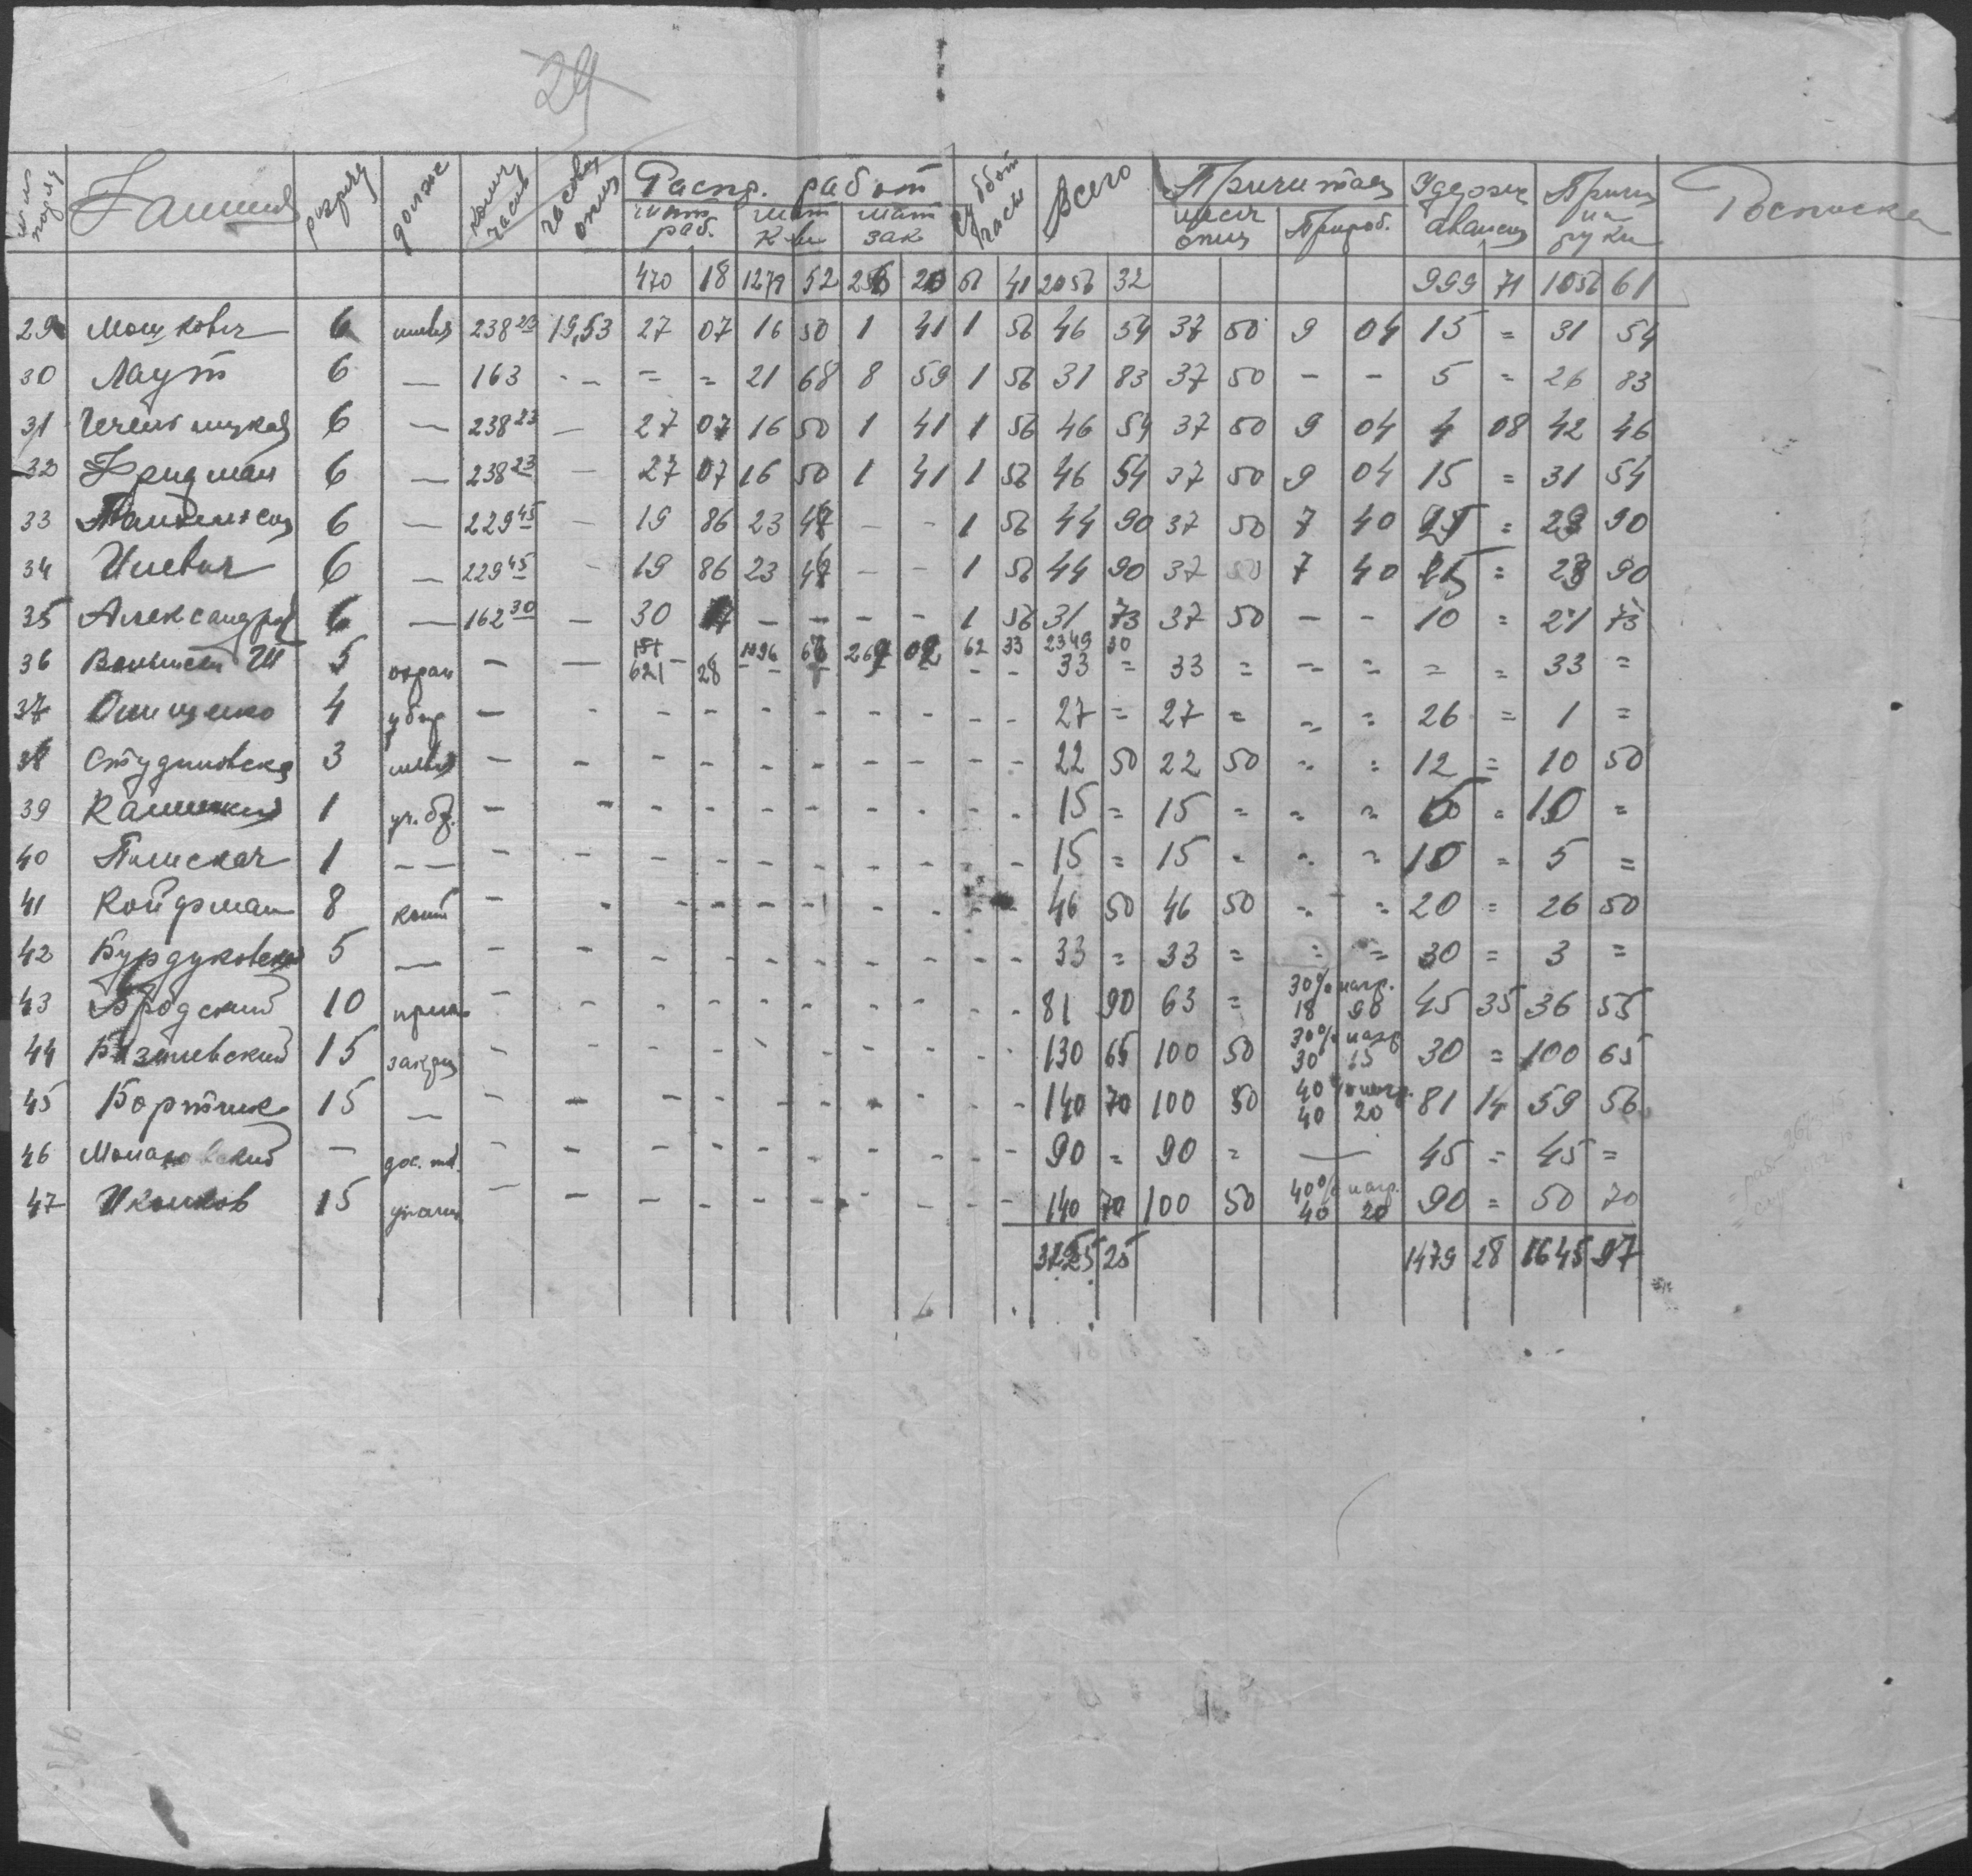 29
Фамилия разряд долже колич часов часовая опл Распр. работ субботн часы Всего Причитается Удержан аванса Причит на руки Росписка
раб. мат к-ви мат зак месяч оплата Прираб.
470 18 1279 52 256 20 51 41 2056 32 999 71 1056 61
29 Мошкович 6 швея 238 23 19,53 27 07 16 50 1 41 1 56 46 54 37 50 9 04 15 = 31 54
30 Лаут 6 — 163 - - = = 21 68 8 59 1 56 31 83 37 50 - - 5 = 26 83
31 6 — 238 23 — 27 07 16 50 1 41 1 56 46 54 37 50 9 04 4 08 42 46
32 Фридман 6 — 238 23 — 27 07 16 50 1 41 1 56 46 54 37 50 9 04 15 = 31 54
33 6 — 229 45 — 19 86 23 48 - - 1 56 44 90 37 50 7 40 = 29 90
34 Илевич 6 — 229 45 - 19 86 23 48 - - 1 56 44 90 37 50 7 40 15 = 29 90
35 Александров 6 — 162 30 — 30 17 - - - - 1 56 31 73 37 50 - - 10 = 21 73
151 1096 68 267 02 62 33 2349 30
36 Ш 5 охран — — 621 28 - - - - - - 33 = 33 = = = = = 33 =
37 Онищенко 4 убор — - - - - - - - - - 27 = 27 = = = 26 = 1 =
38 Студиновска 3 швея — - - - - - - - - - 22 50 22 50 = = 12 = 10 50
39 1 уч. бр. — - - - - - - - - - 15 = 15 = = = = 10 =
40 1 — — - - - - - - - - - - 15 = 15 = = = 10 = 5 =
41 Койфман 8 - - - - - - - - - - 46 50 46 50 = = 20 = 26 50
42 Бурдуковский 5 — - - - - - - - - - - 33 = 33 = = = 30 = 3 =
43 Бродский 10 - - - - - - - - - - 81 90 63 = 30% нагр. 18 90 45 35 36 55
44 15 - - - - - - - - - - 130 65 100 50 30% нагр 30 15 30 = 100 65
45 Бортник 15 — — — - - - - - - - - 140 70 100 50 40% нагр. 40 20 81 14 59 56
46 — - - - - - - - - - - 90 = 90 = — 45 = 45 =
47 Иконков 15 — — - - - - - - - - 140 70 100 50 40% нагр. 40 20 90 = 50 70
3125 25 1479 28 1645 97